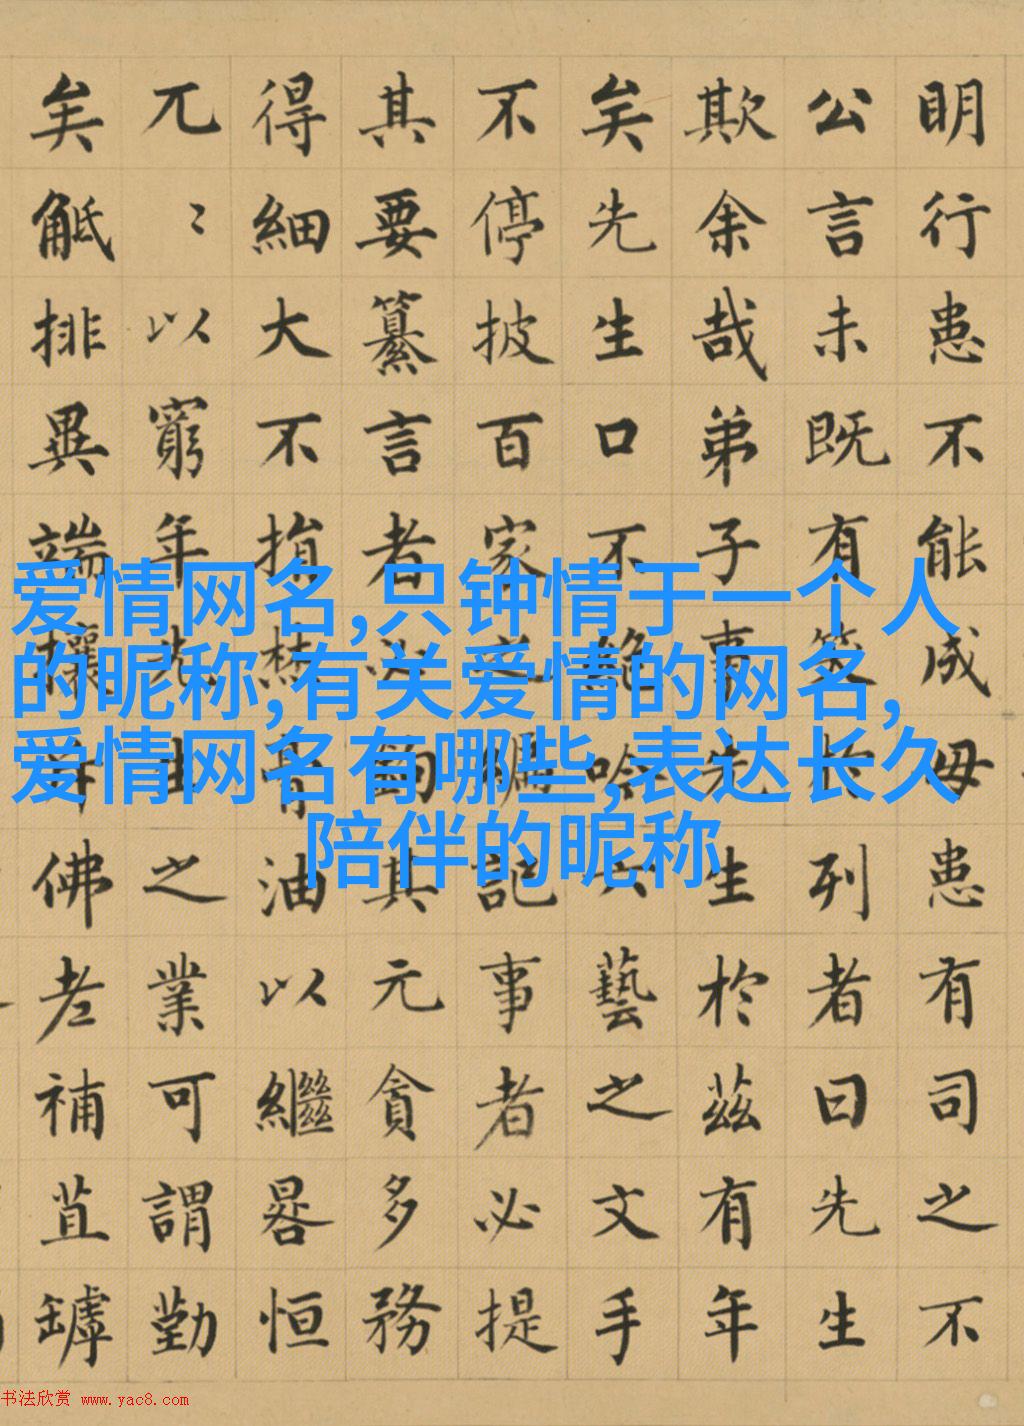 明行患不能成毋患有司之不
公言未既有笑於列者曰先生
欺余哉弟子事先生於茲有年
矣先生口不絶吟六藝之文手
不停披百家之編記事者必提
其要纂言者必鉤其元貪多務
得細大不捐焚膏油以繼晷恒
兀〻以窮年先生之業可謂勤
矣觝排異端攘斥佛老補苴罅
爱情网名,只钟情于一个人
的昵称,有关爱情的网名,
爱情网名有哪些,表达长久
陪伴的昵称
书法欣赏 www.yac8.com